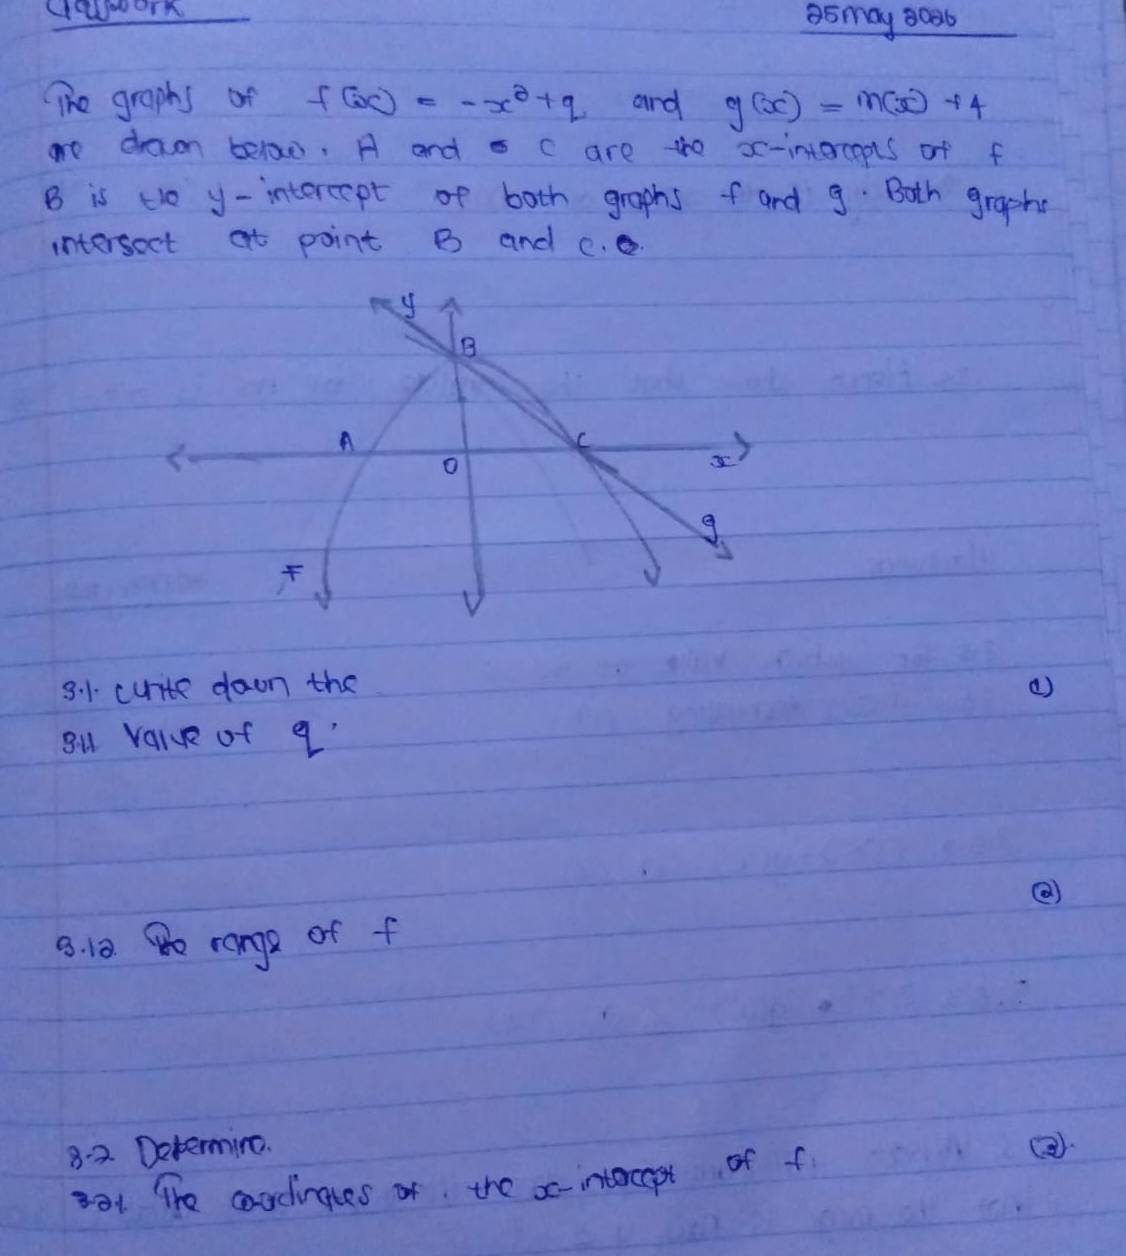 Classwork
25 May 2026
The graphs of f(x) = -x²+q and g(x) = m(x) +4
are drawn below. A and C are the x-intercepts of f
B is the y-intercept of both graphs f and g. Both graphs
intersect at point B and C.
y
B
A
C
O
x
g
F
3.1. write down the
(1)
3.11 Value of q.
(2)
3.12 The range of f
3.2 Determine.
(3).
3.21 The coordinates of the x-intercept of f.